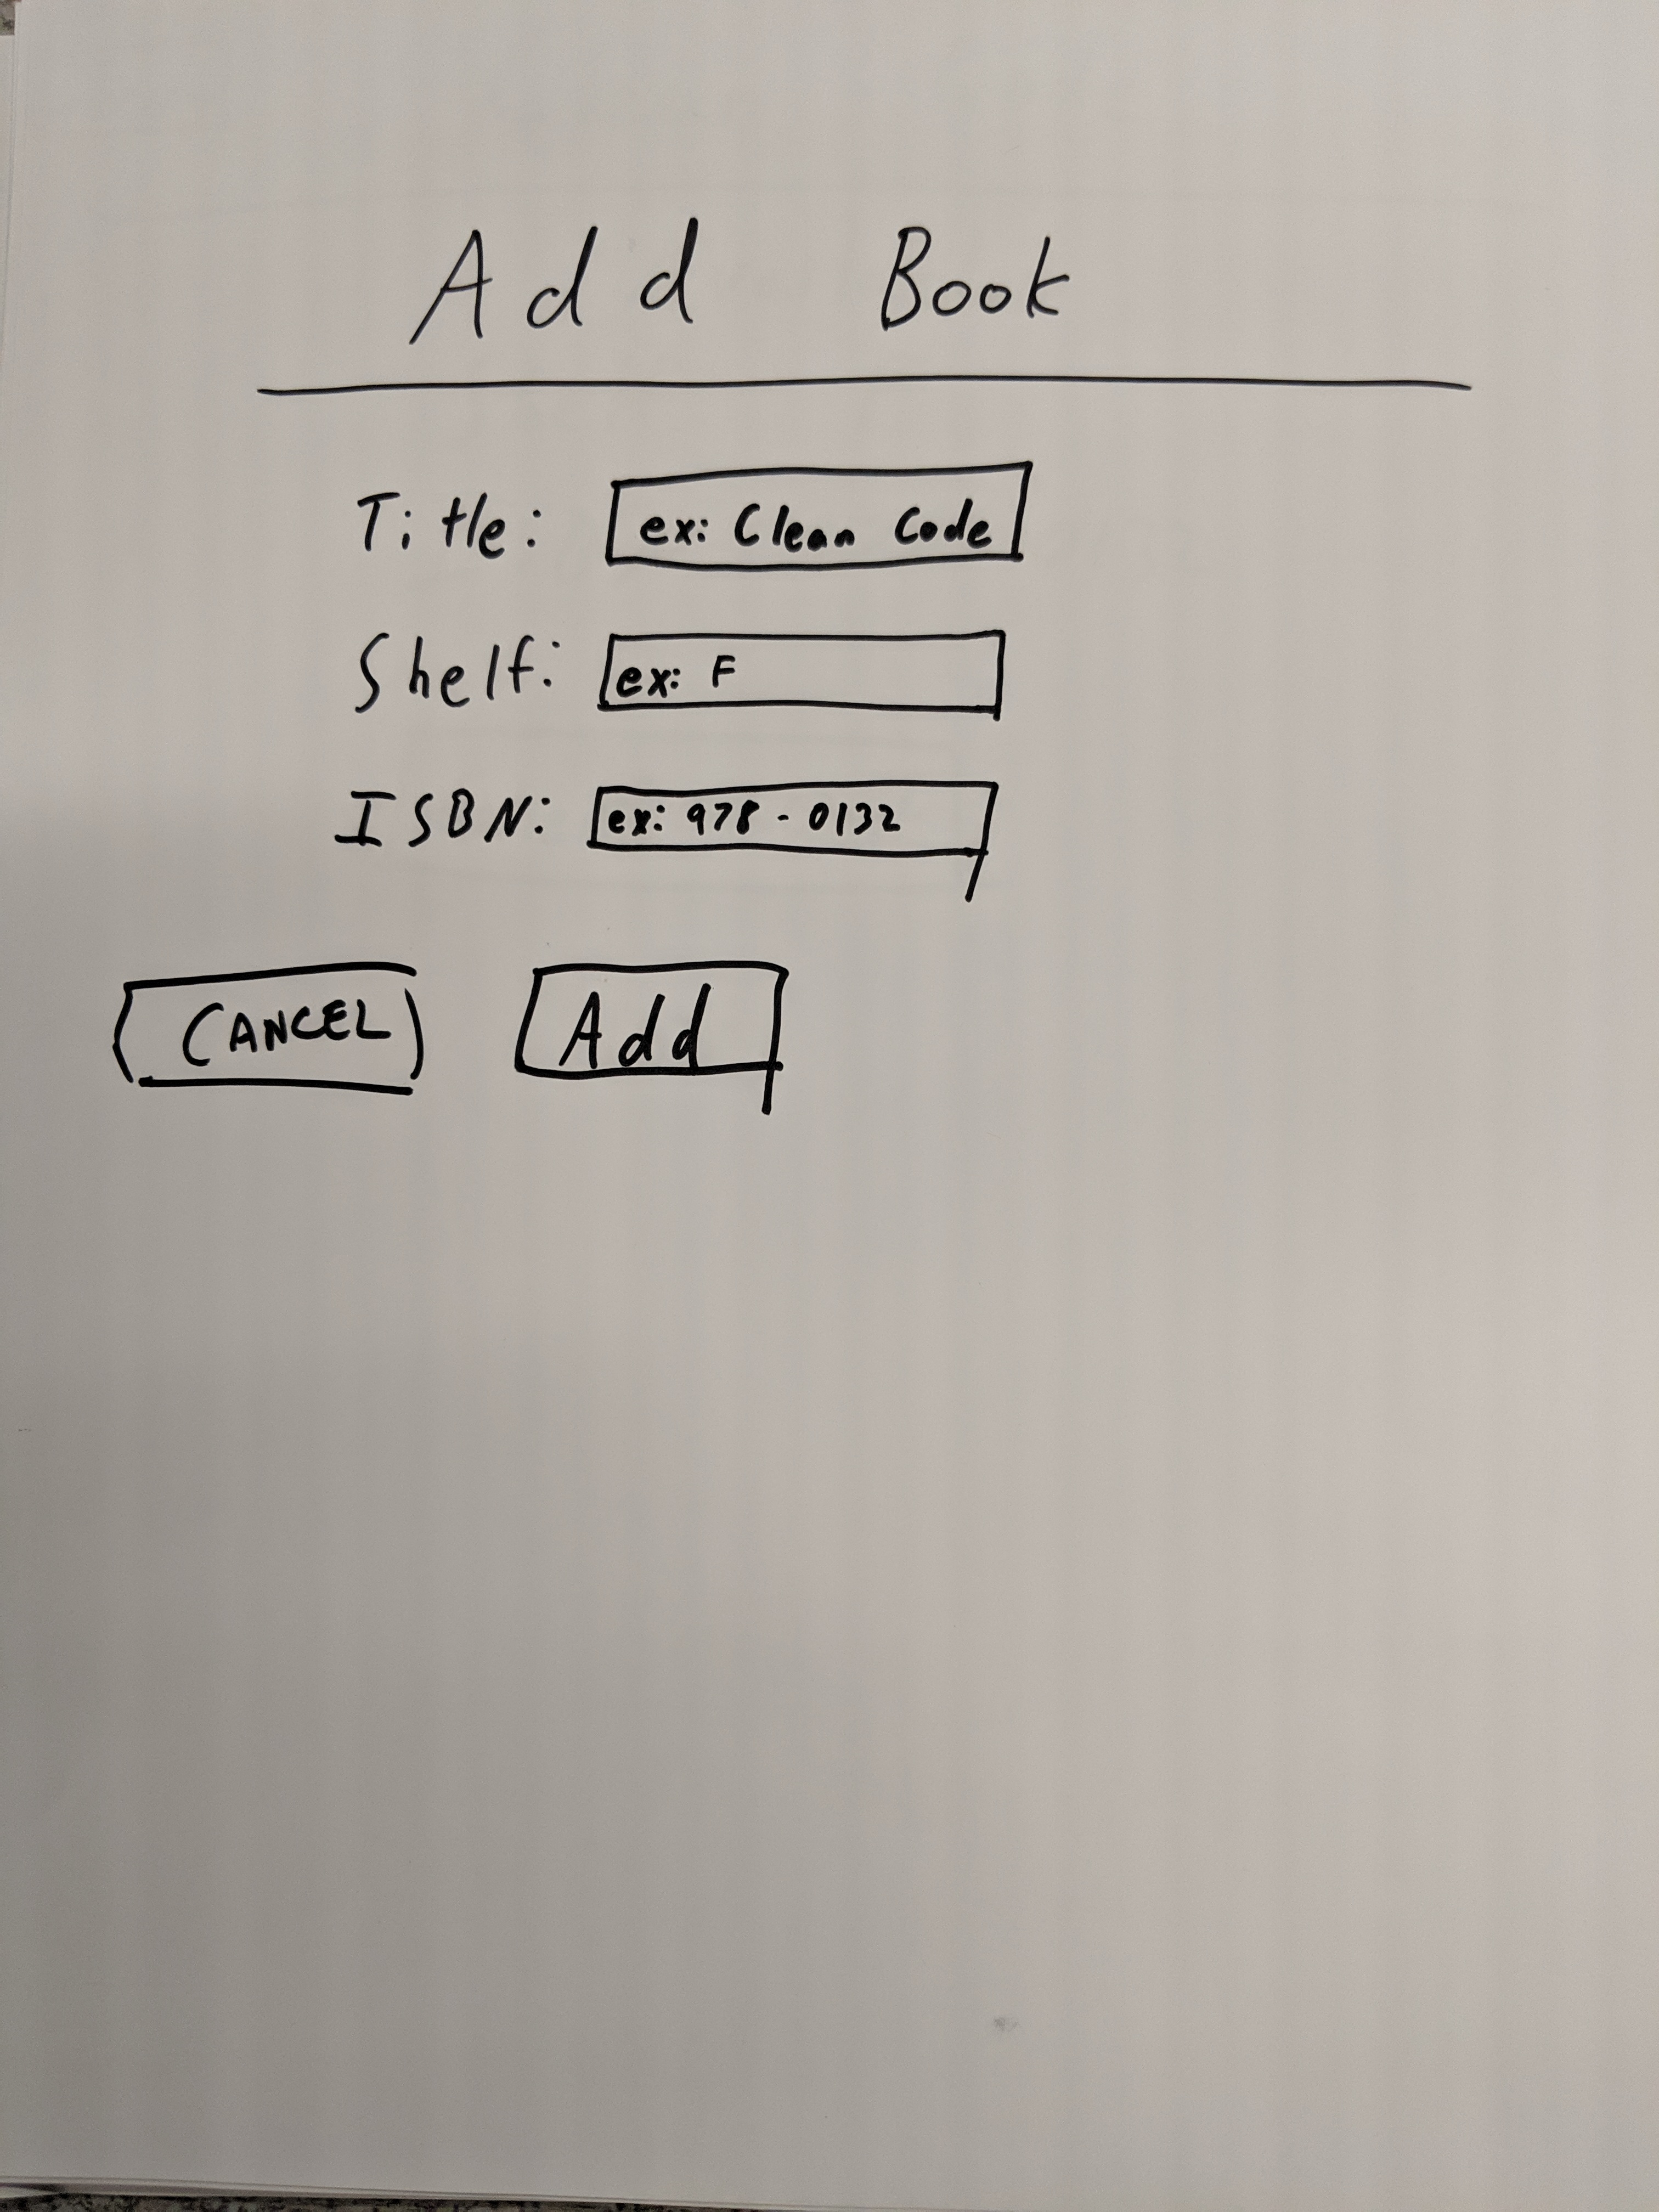 Add Book
Title: ex: Clean Code
Shelf: ex: F
ISBN: ex: 978-0132
CANCEL Add